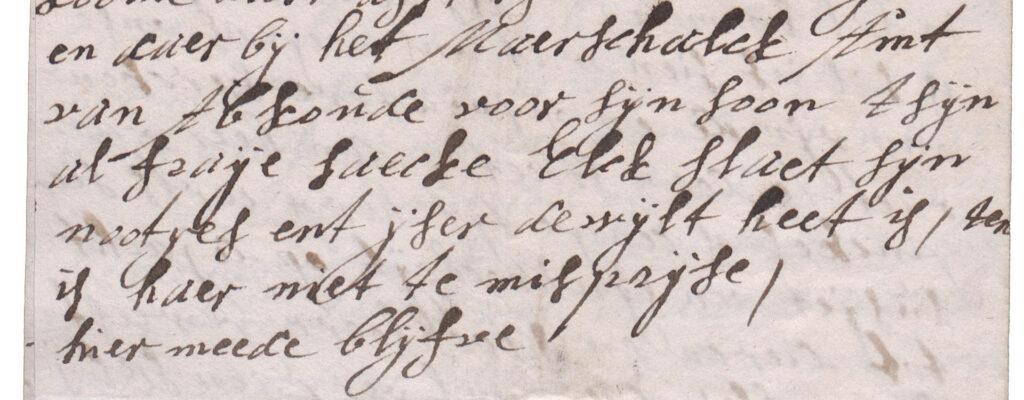 en daer bij het Maerschalck Amt
van Abkoude voor sijn soon tsijn
al fraije saecke Elck slaet sijn
nootges ent ijser dewijlt heet is, ten
is haer niet te misprijse,
hier meede blijfve